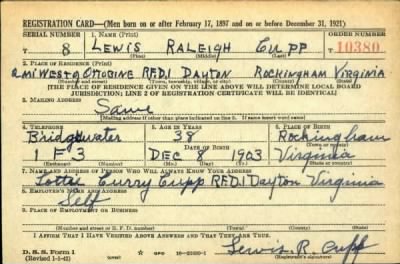 REGISTRATION CARD—(Men born on or after February 17, 1897 and on or before December 31, 1921)
SERIAL NUMBER 1. NAME (Print) ORDER NUMBER
T 8 LEWIS RALEIGH CUPP 10380
(First) (Middle) (Last)
2. PLACE OF RESIDENCE (Print)
2 mi West of Ottobine RFD.1 DAYTON ROCKINGHAM VIRGINIA
(Number and street) (Town, township, village, or city) (County) (State)
[THE PLACE OF RESIDENCE GIVEN ON THE LINE ABOVE WILL DETERMINE LOCAL BOARD
JURISDICTION; LINE 2 OF REGISTRATION CERTIFICATE WILL BE IDENTICAL]
3. MAILING ADDRESS
Same
[Mailing address if other than place indicated on line 2. If same insert word same]
4. TELEPHONE 5. AGE IN YEARS 6. PLACE OF BIRTH
Bridgewater 38 Rockingham
DATE OF BIRTH (Town or county)
1 F 3 DEC 8 1903 Virginia
(Exchange) (Number) (Mo.) (Day) (Yr.) (State or country)
7. NAME AND ADDRESS OF PERSON WHO WILL ALWAYS KNOW YOUR ADDRESS
Lottie Curry Cupp RFD.1 Dayton Virginia
8. EMPLOYER'S NAME AND ADDRESS
Self
9. PLACE OF EMPLOYMENT OR BUSINESS
(Number and street or R. F. D. number) (Town) (County) (State)
I AFFIRM THAT I HAVE VERIFIED ABOVE ANSWERS AND THAT THEY ARE TRUE.
D. S. S. Form 1
(Revised 1-1-42) GPO
Lewis R. Cupp
(Registrant's signature)